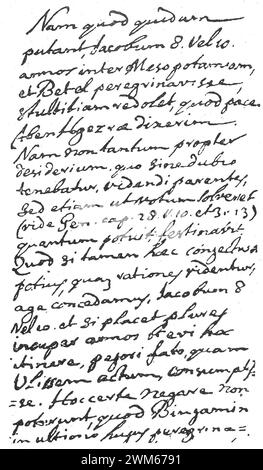 Nam quod quidam
putant, Jacobum 8. vel 10.
annos inter Mesopotamiam,
et Betel peregrinavisse,
stultitiam redolet, quod pace
Aben Hgezræ dixerim.
Nam non tantum propter
desiderium, quo sine dubio
tenebatur, videndi parentes,
sed etiam ut votum solveret
(vide Gen. cap. 28 v. 10. et 31.13)
quantum potuit festinavit.
Quod si tamen hæc conjecturæ
potius, quam rationes videntur,
age concedamus, Jacobum 8
vel 10. et si placet plures
insuper annos brevi hoc
itinere, pejori fato, quam
Ulissem actum, consumpsis=
=se. Hoc certe negare non
poterunt, quod Binjamin
in ultimo hujus peregrina=
alamy - 2WM6791